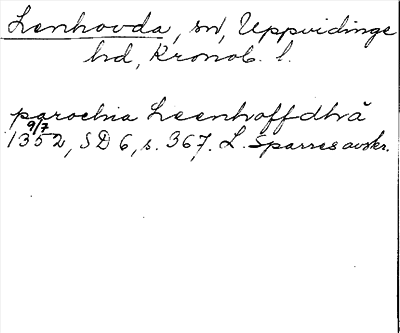 Lenhovda, sn, Uppvidinge
hd, Kronob. l.
parochia Leenhoffdhrå
9/7
1352, SD 6, s. 367. L. Sparres avskr.